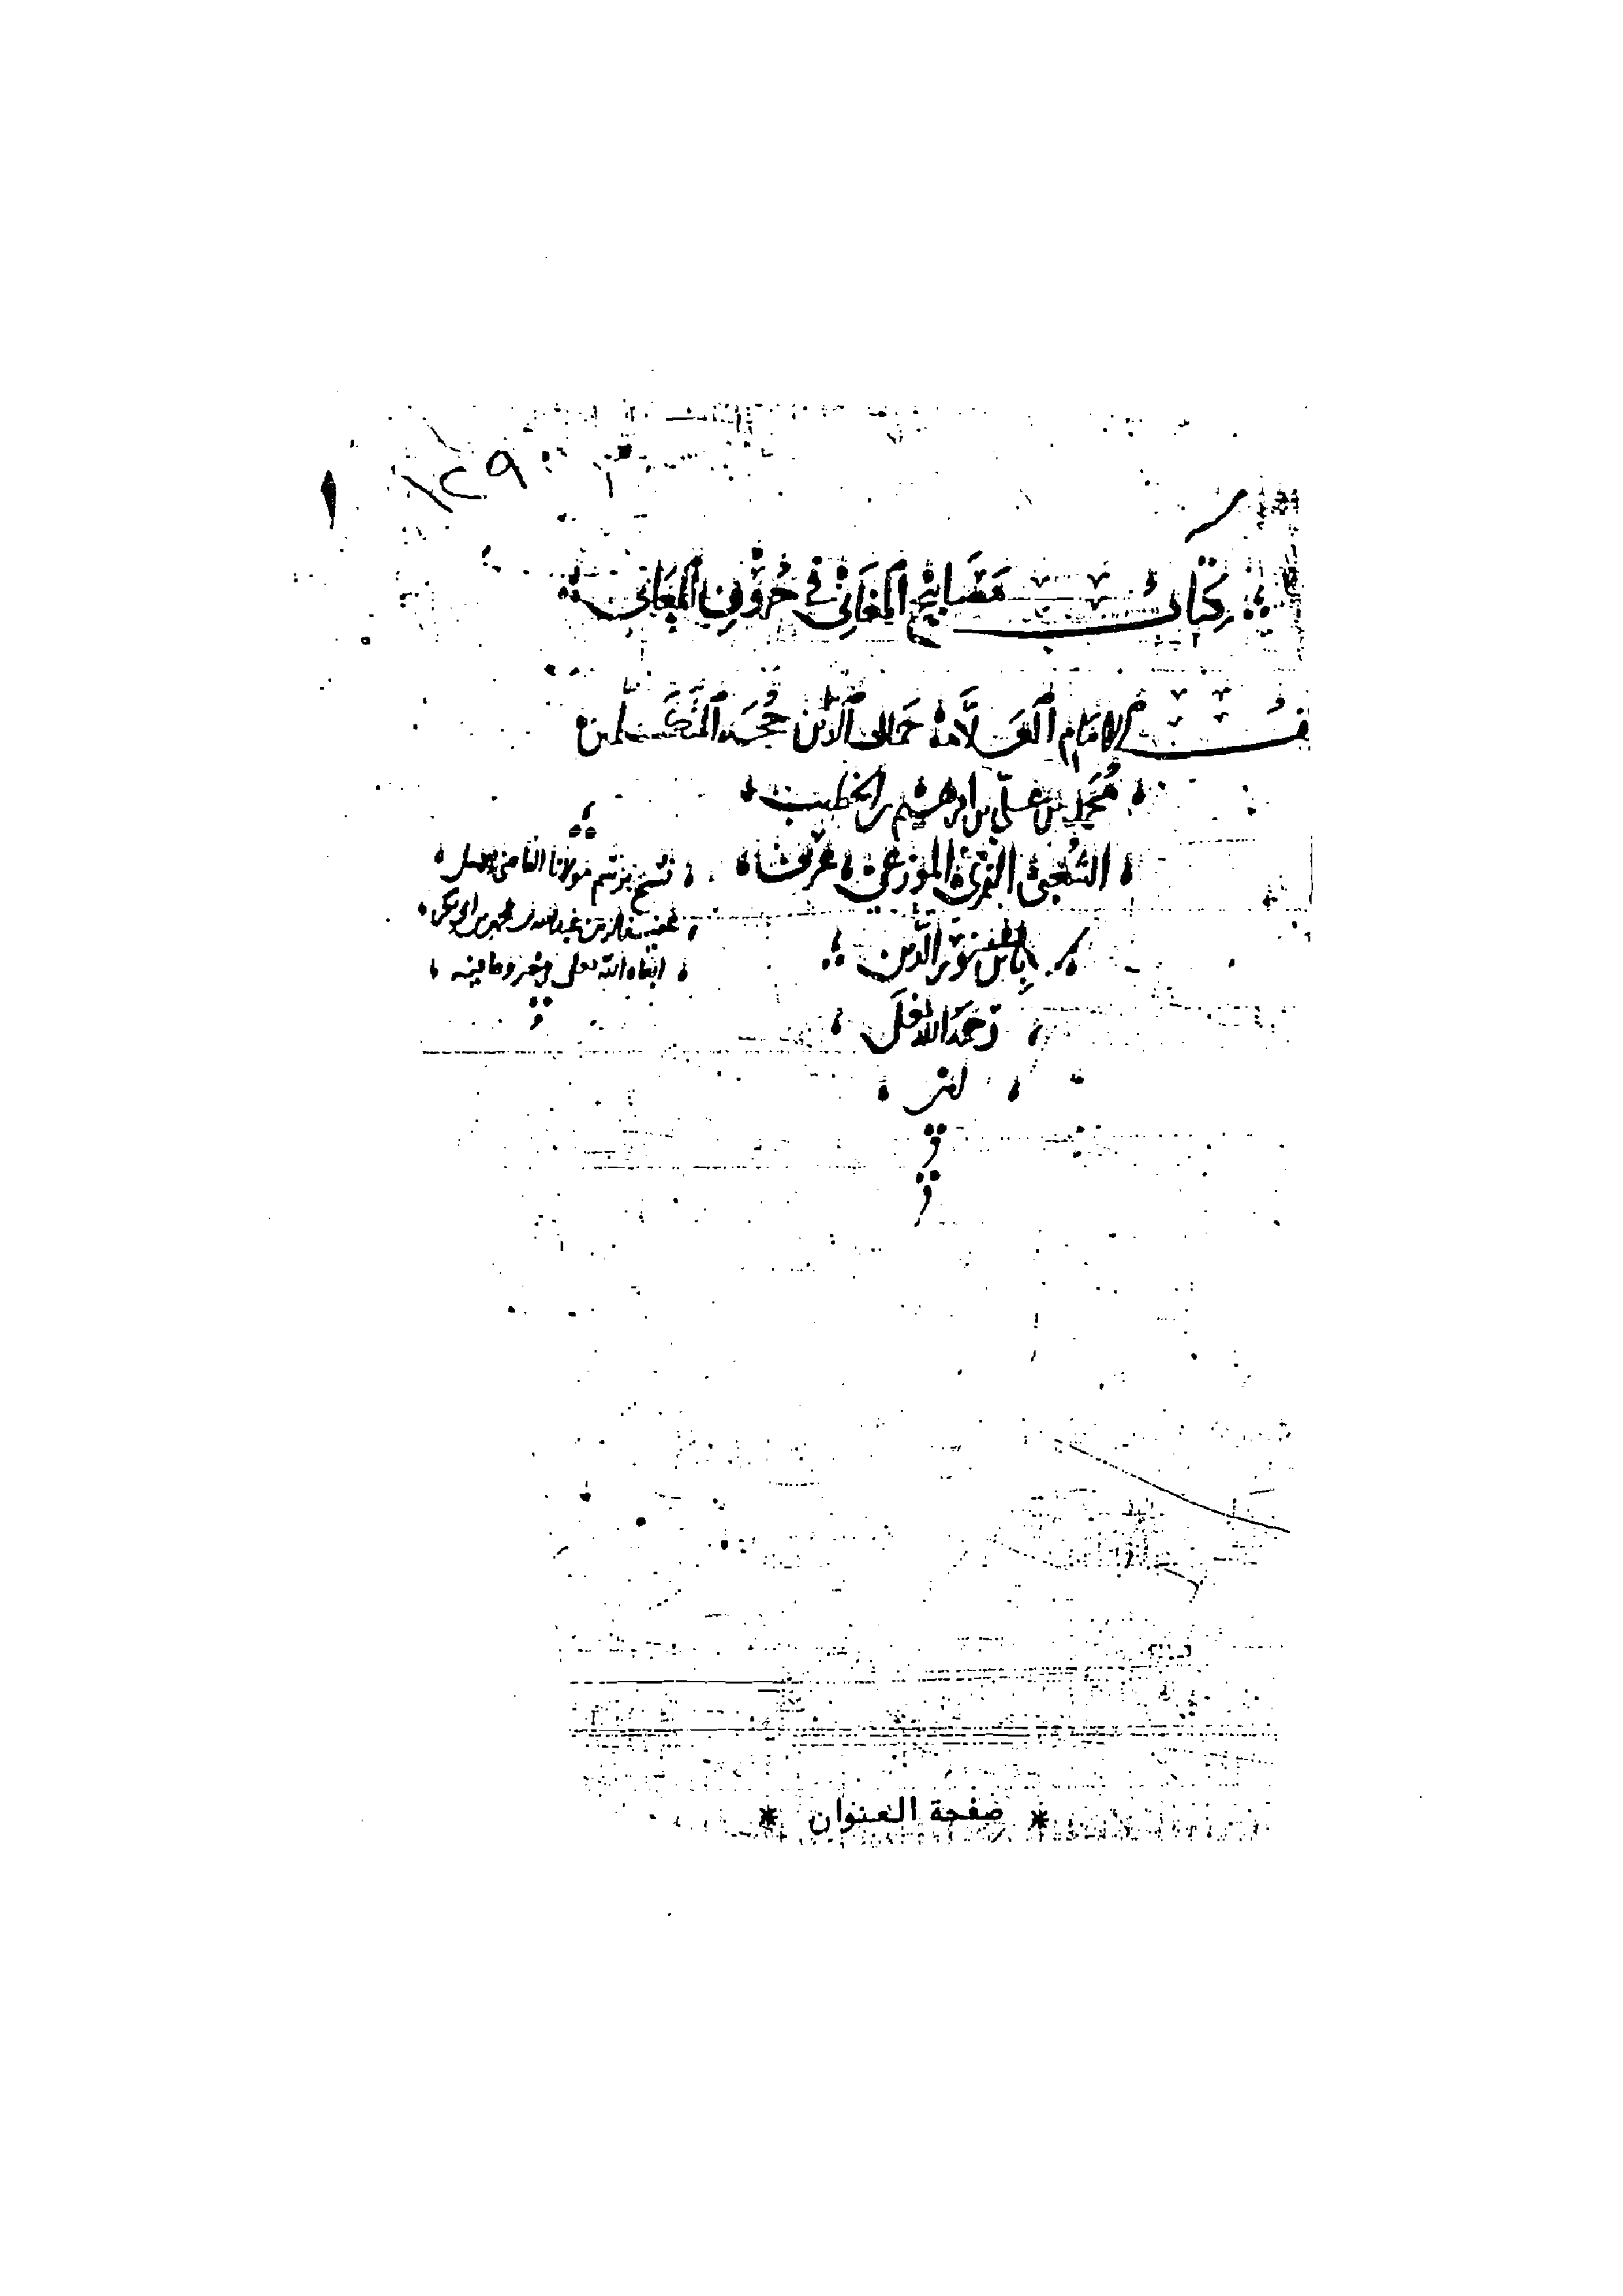 ١٢٩
١
كتاب مَصَابيْح المغَانيْ في حُرُوْفِ المعَاني
الإمَام العَلاَّمة جَمال الدّين حُجّة المتَكَلمين
مُحَمد بن علي بن ابرهيم بن الخطيب
الشعبي المَوزعي عرف
بابن نور الدّين
رَحمَهُ الله تعلى
نسخ برسم مولانا القاضي
عفيف الدين عبدالله بن محمد بن ابي بكر
ابقاه الله تعلى وعافيته
* صفحة العنوان *